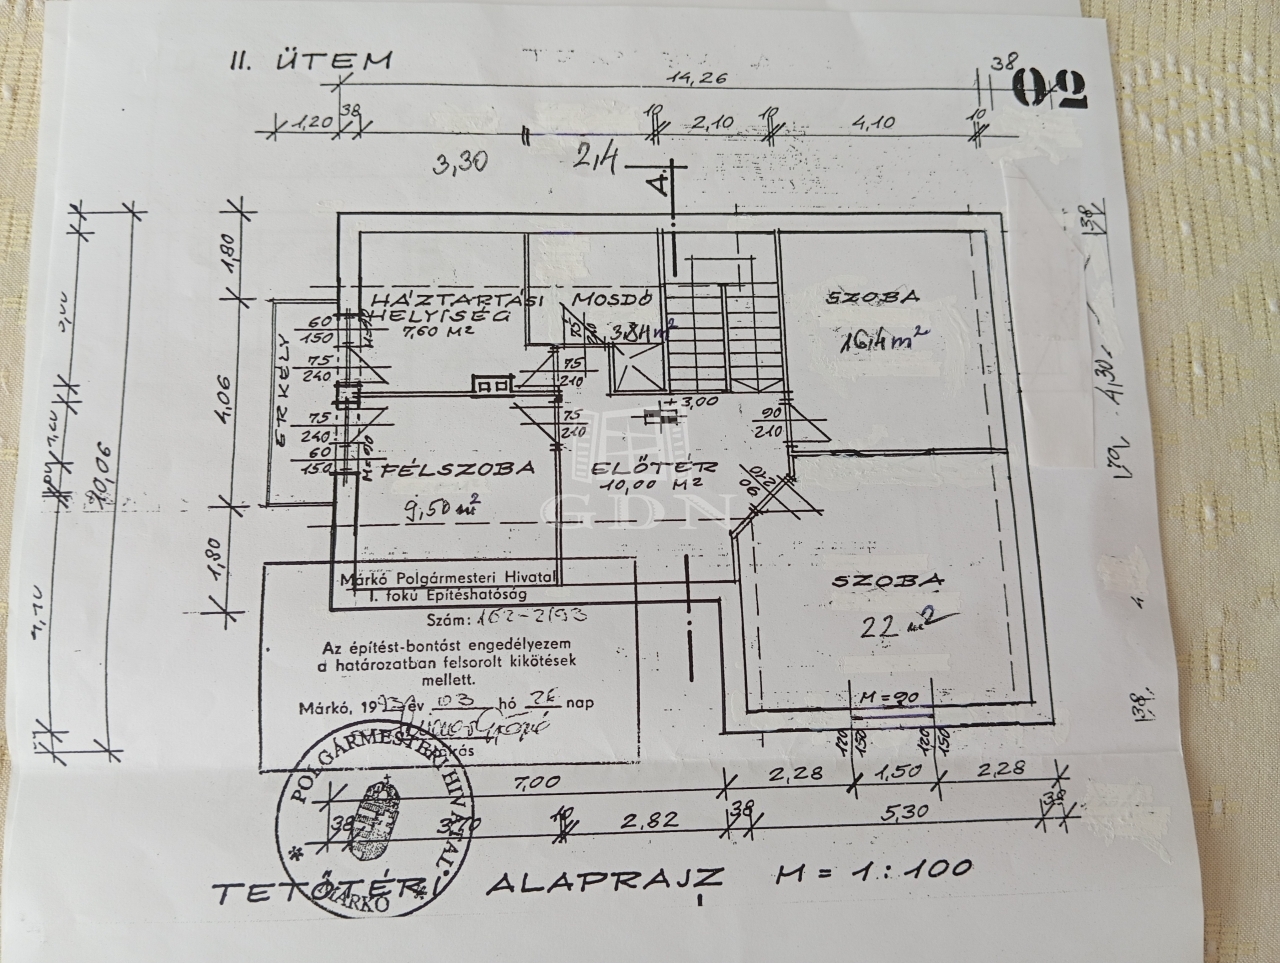 II. ÜTEM
14,26
38
50
1,20
38
10
2,10
10
4,10
10
3,30
2,4
A.
38
1,80
HÁZTARTÁSI
HELYISÉG
7,60 M²
MOSDÓ
3,84 m²
SZOBA
16,4 m²
60
150
75
240
75
210
75
210
ERKÉLY
4,06
75
240
60
150
M=90
+3,00
90
210
4,30
10,06
FÉLSZOBA
9,50 m²
ELŐTÉR
10,00 M²
90
210
GDN
1,80
SZOBA
22 m²
M=90
120
150
120
150
38
Márkó Polgármesteri Hivatal
I. fokú Építéshatóság
Szám: 162-2/93
Az építést-bontást engedélyezem
a határozatban felsorolt kikötések
mellett.
Márkó, 1993 év 03 hó 26 nap
POLGÁRMESTERI HIVATAL
MÁRKÓ
7,00
2,28
1,50
2,28
38
3,70
10
2,82
38
5,30
38
TETŐTÉRI ALAPRAJZ M = 1:100